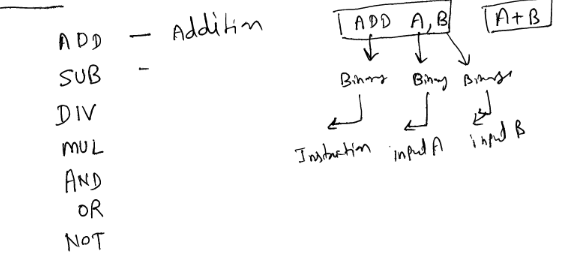 ADD - Addition
SUB -
DIV
MUL
AND
OR
NOT
ADD A,B
A+B
Binary Binary Binary
Instruction input A input B